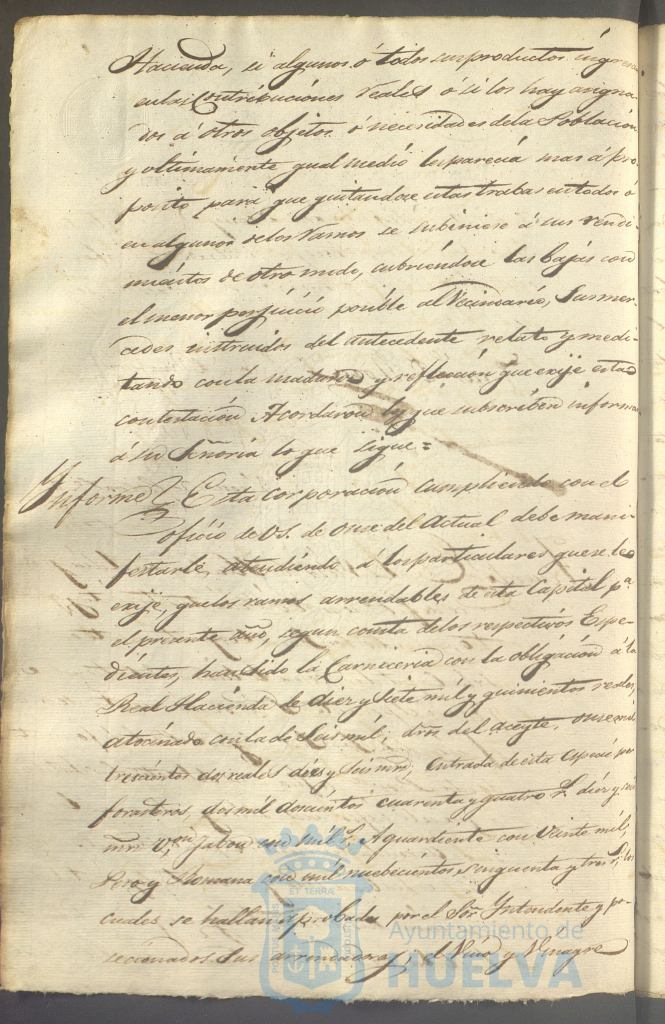 Hacienda, si algunos ó todos sus productos ingresa
en las Contribuciónes reales ó si los hay asigna-
dos a otros objetos ó necesidades de la Poblacion
y ultimamente qual medió les parecia mas á pro-
posito para que quitandose estas trabas en todos ó
en algunos de los Ramos se subiniese á sus rendi-
mientos de otro modo, cubriendose las bajas con
el menor perjuicio posible al Vecindario, Sus mer-
cedes instruidos del antecedente relato y medi-
tando con la madurez y reflección que exije esta
contestación Acordaron los que subscriben informar
á su Señoria lo que sigue =
Informe Esta corporación cumpliendo con el
oficio de V.S. de once del Actual debe mani-
festarle, atendiendo á los particulares que se le
exije, que los ramos arrendables de esta Capital pa.
el presente año, segun consta de los respectivos Espe-
dientes, han sido la Carniceria con la obligación á la
Real Hacienda de diez y siete mil y quinientos reales,
atocinado con la de Seis mil, dros del aceyte, once mil
trescientos dos reales diez y seis mrs, entrada de esta especie por
forasteros, dos mil doscientos cuarenta y quatro r. diez y seis
mrs vn. Jabon un mil r. Aguardiente con veinte mil,
Peso y Romana con mil nuebecientos sinquenta y tres r, los
cuales se hallan aprobados por el Sor. Yntendente y po-
secionados sus arrendadores; el Vino y Vinagre
ET TERRAE
Ayuntamiento de
HUELVA